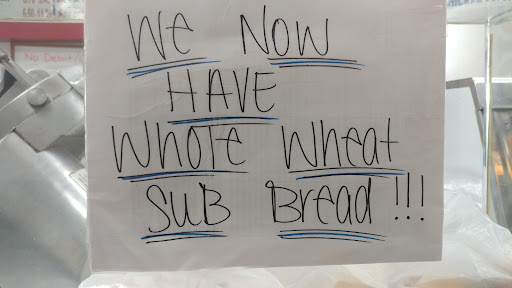 We Now
HAVE
Whole Wheat
SUB Bread!!!
No Debit